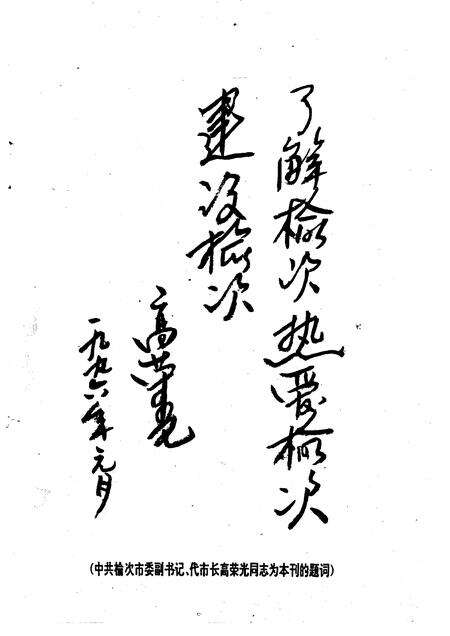 了解榆次热爱榆次
建设榆次
高荣光
一九九六年元月
(中共榆次市委副书记、代市长高荣光同志为本刊的题词)